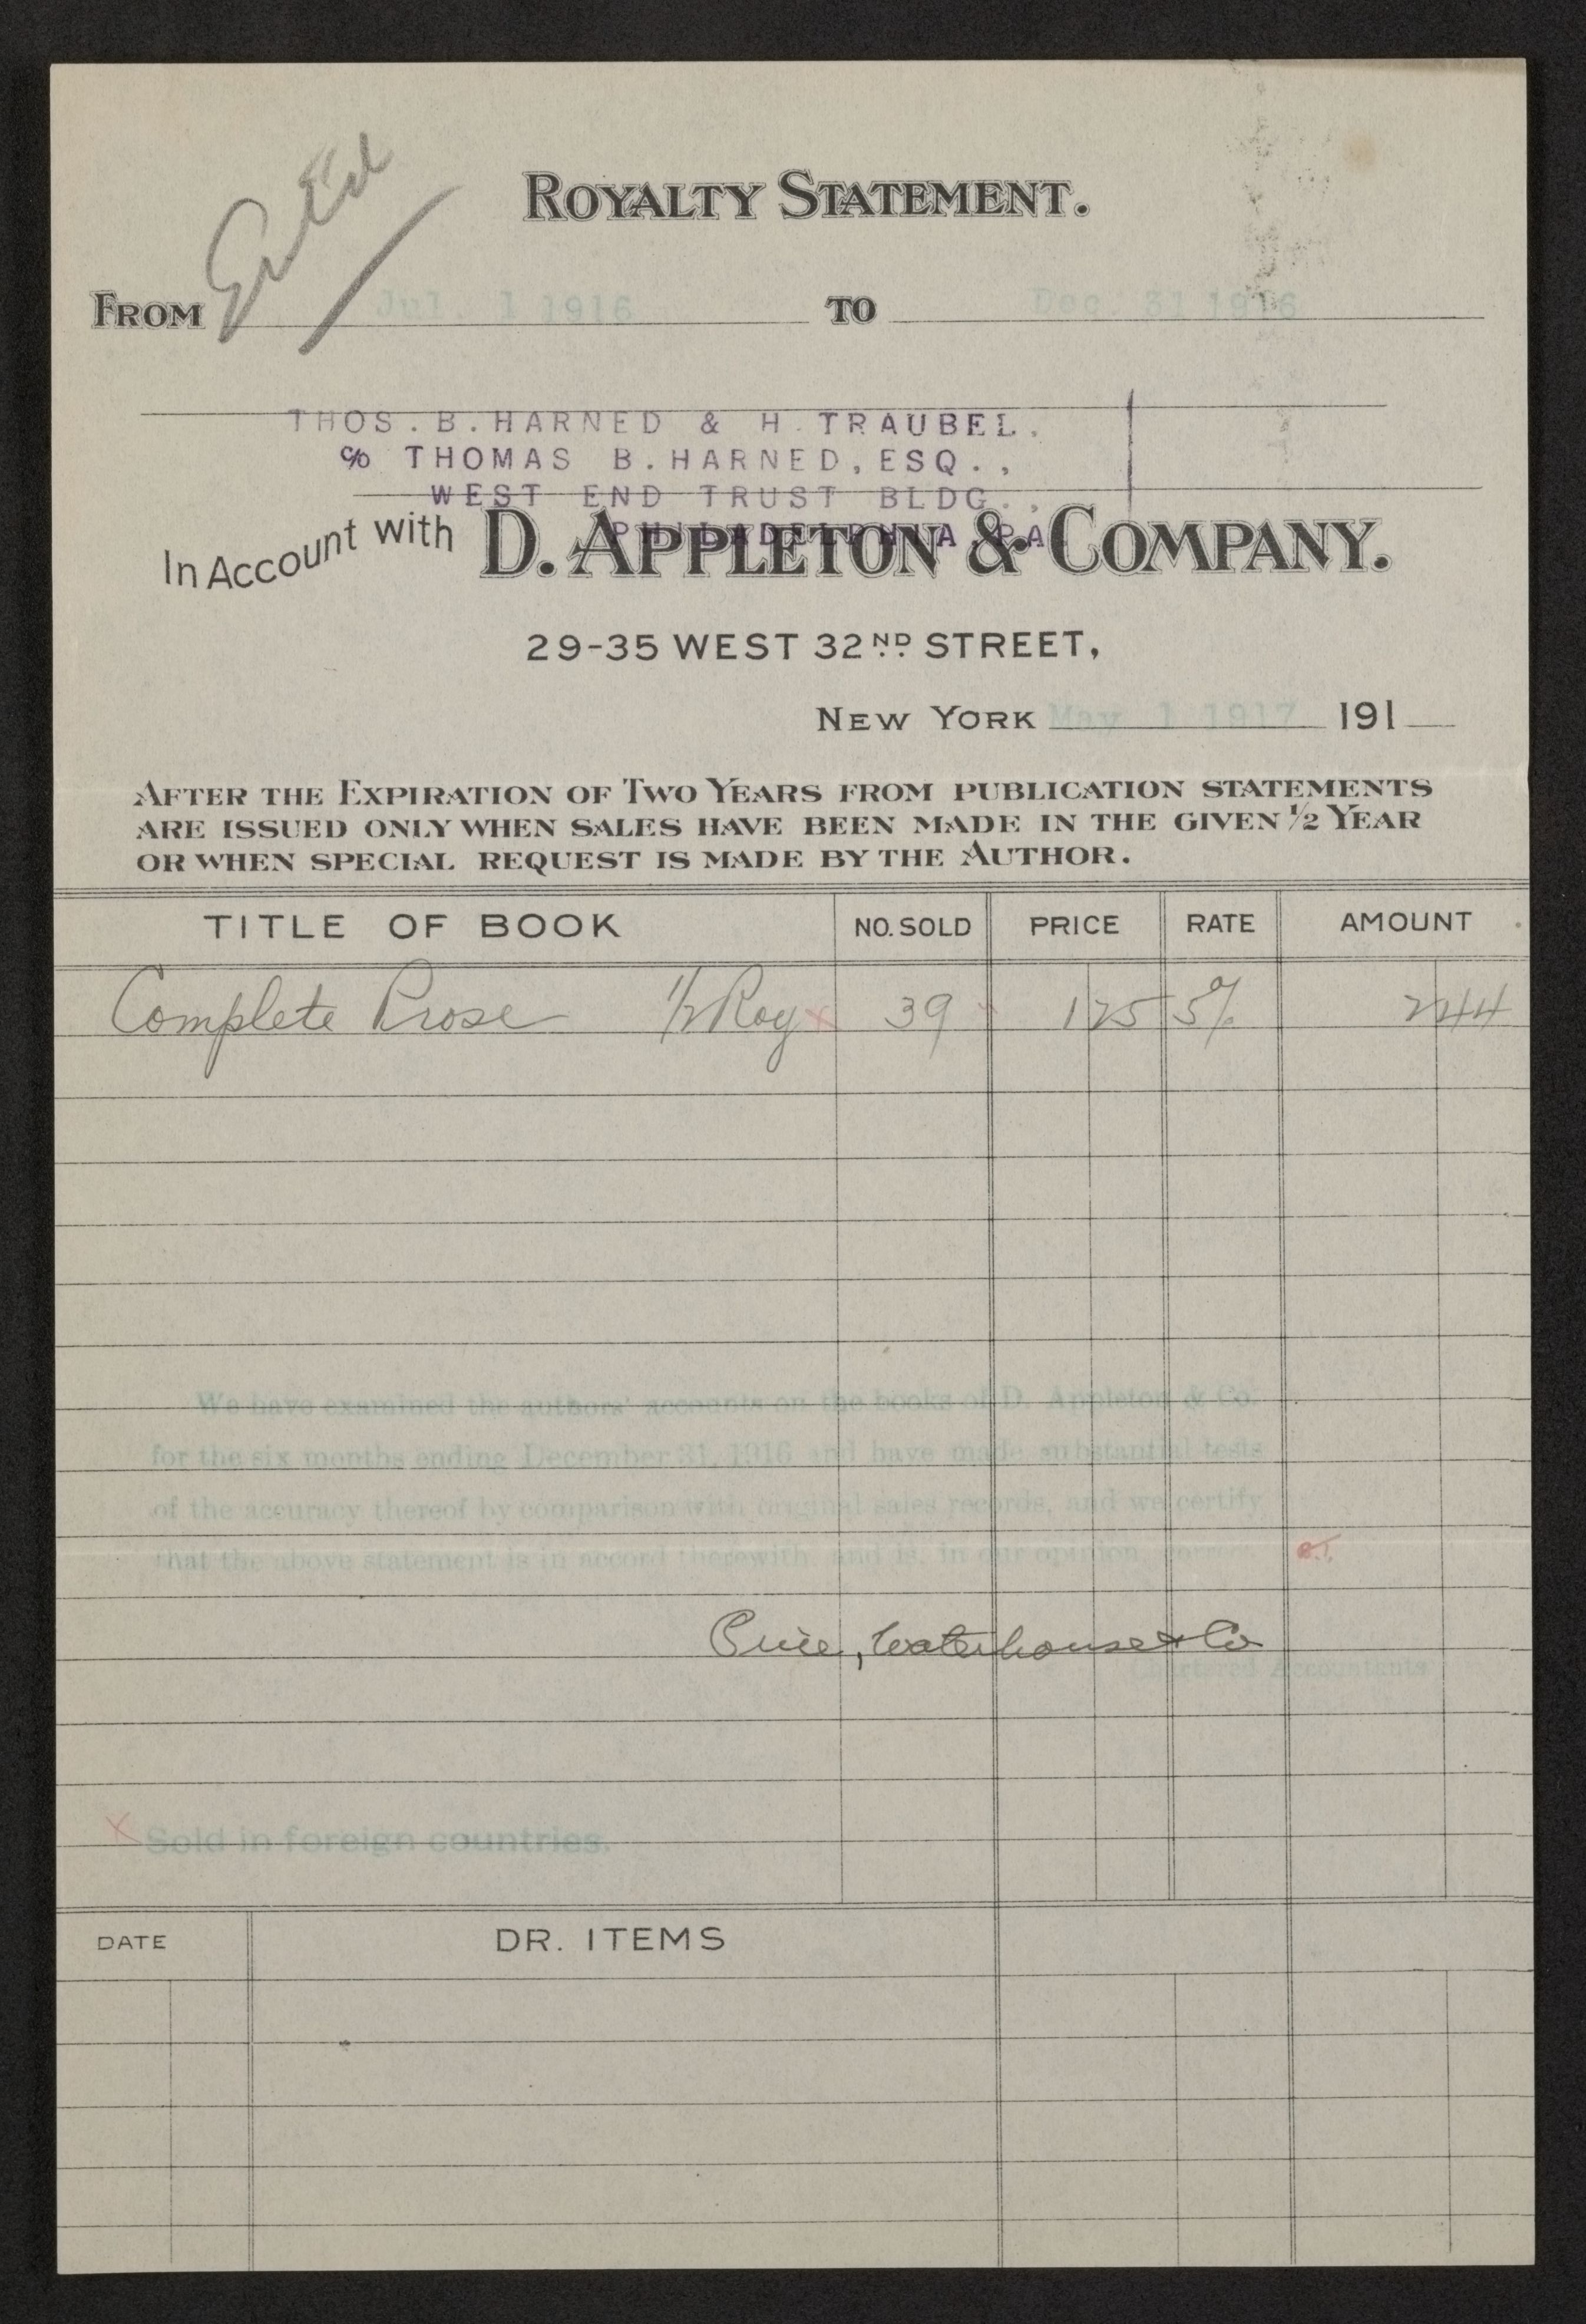 Ent'd
ROYALTY STATEMENT.
FROM Jul. 1 1916 TO Dec. 31 1916
THOS. B. HARNED & H. TRAUBEL.
c/o THOMAS B. HARNED, ESQ.,
WEST END TRUST BLDG.,
PHILADELPHIA, PA
In Account with D. APPLETON & COMPANY.
29-35 WEST 32ND STREET,
NEW YORK May 1 1917 191
AFTER THE EXPIRATION OF TWO YEARS FROM PUBLICATION STATEMENTS
ARE ISSUED ONLY WHEN SALES HAVE BEEN MADE IN THE GIVEN ½ YEAR
OR WHEN SPECIAL REQUEST IS MADE BY THE AUTHOR.
TITLE OF BOOK NO. SOLD PRICE RATE AMOUNT
Complete Prose ½ Roy x 39 1 25 5% 2 44
We have examined the authors' accounts on the books of D. Appleton & Co.
for the six months ending December 31, 1916 and have made substantial tests
of the accuracy thereof by comparison with original sales records, and we certify
that the above statement is in accord therewith, and is, in our opinion, correct.
Price, Waterhouse & Co
Chartered Accountants
x Sold in foreign countries.
DATE DR. ITEMS